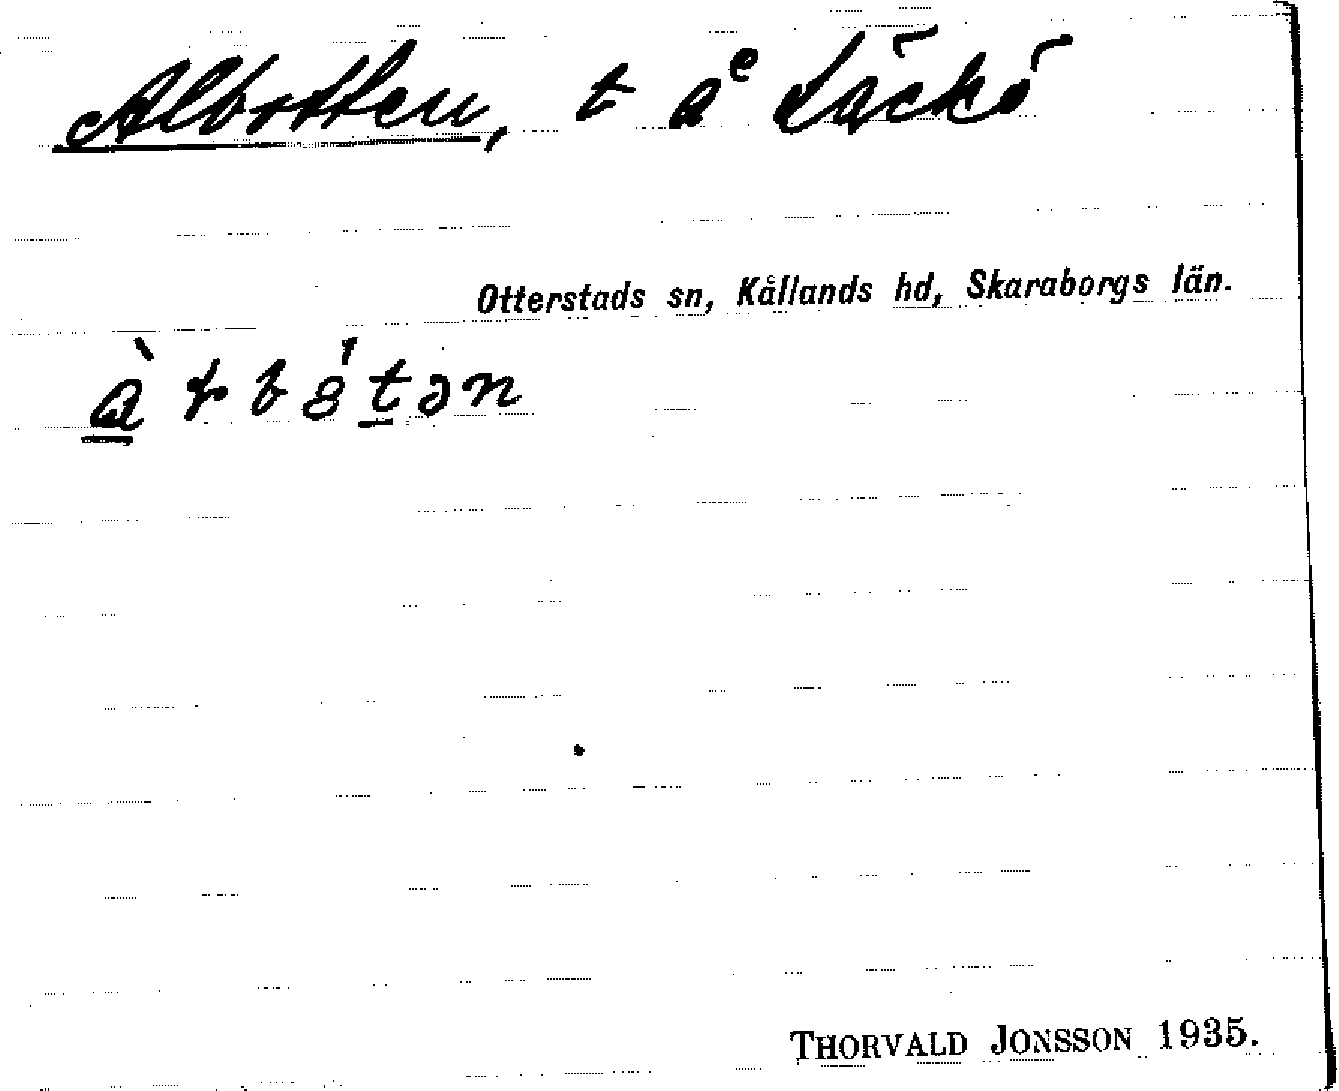 Albotten, t å Läckö
Otterstads sn, Kållands hd, Skaraborgs län.
THORVALD JONSSON 1935.